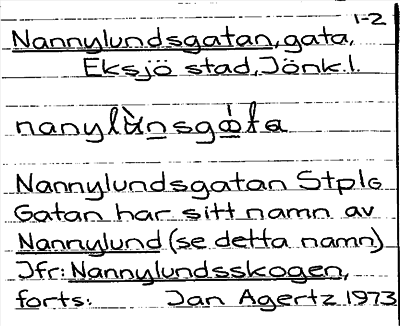 1-2
Nannylundsgatan, gata,
Eksjö stad, Jönk.l.
Nannylundsgatan Stplg
Gatan har sitt namn av
Nannylund (se detta namn)
Jfr: Nannylundsskogen,
forts. Jan Agertz 1973